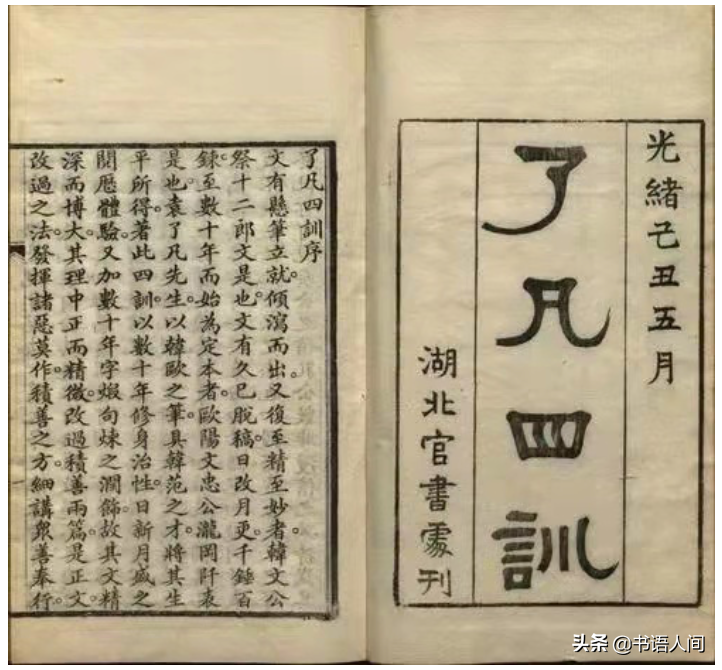 光緒己丑五月
了凡四訓
湖北官書處刊
了凡四訓序
文有懸筆立就。傾瀉而出。又復至精至妙者。韓文公
祭十二郎文是也。文有久已脫稿。日改月更。千錘百
鍊。至數十年而始為定本者。歐陽文忠公瀧岡阡表
是也。袁了凡先生。以韓歐之筆。具韓范之才。將其生
平所得。著此四訓。以數十年修身治性。日新月盛之
閱歷體驗。又加數十年字煅句煉之潤飾。故其文精
深而博大。其理中正而精微。改過積善兩篇。是正文。
改過之法。發揮諸惡莫作。積善之方。細講眾善奉行。
头条 @书语人间